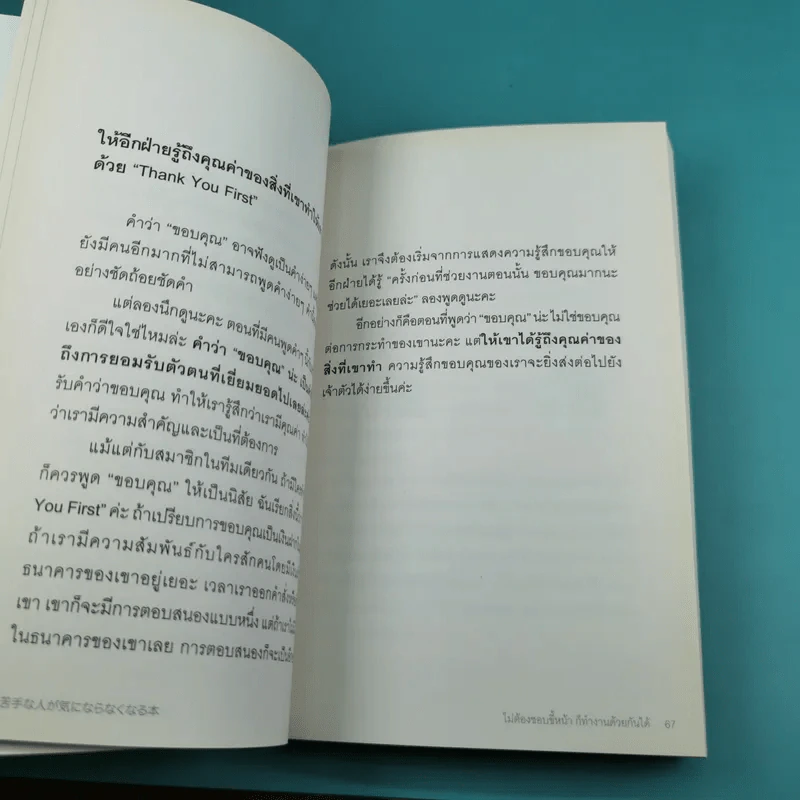 ให้อีกฝ่ายรู้ถึงคุณค่าของสิ่งที่เขาทำ
ด้วย “Thank You First”
คำว่า “ขอบคุณ” อาจฟังดูเป็นคำง่ายๆ
ยังมีคนอีกมากที่ไม่สามารถพูดคำง่ายๆ
อย่างชัดถ้อยชัดคำ
แต่ลองนึกดูนะคะ ตอนที่มีคนพูดคำๆ
เองก็ดีใจใช่ไหมล่ะ คำว่า “ขอบคุณ” น่ะ
ถึงการยอมรับตัวตนที่เยี่ยมยอดไปเลย
รับคำว่าขอบคุณ ทำให้เรารู้สึกว่าเรามีคุณค่า
ว่าเรามีความสำคัญและเป็นที่ต้องการ
แม้แต่กับสมาชิกในทีมเดียวกัน
ก็ควรพูด “ขอบคุณ” ให้เป็นนิสัย ฉันเรียก
You First” ค่ะ ถ้าเปรียบการขอบคุณเป็นเงิน
ถ้าเรามีความสัมพันธ์กับใครสักคนโดยมี
ธนาคารของเขาอยู่เยอะ เวลาเราออกคำสั่ง
เขา เขาก็จะมีการตอบสนองแบบหนึ่ง แต่ถ้า
ในธนาคารของเขาเลย การตอบสนองก็จะเป็น
苦手な人が気にならなくなる本
ดังนั้น เราจึงต้องเริ่มจากการแสดงความรู้สึกขอบคุณให้
อีกฝ่ายได้รู้ “ครั้งก่อนที่ช่วยงานตอนนั้น ขอบคุณมากนะ
ช่วยได้เยอะเลยล่ะ” ลองพูดดูนะคะ
อีกอย่างก็คือตอนที่พูดว่า “ขอบคุณ” น่ะ ไม่ใช่ขอบคุณ
ต่อการกระทำของเขานะคะ แต่ให้เขาได้รู้ถึงคุณค่าของ
สิ่งที่เขาทำ ความรู้สึกขอบคุณของเราจะยิ่งส่งต่อไปยัง
เจ้าตัวได้ง่ายขึ้นค่ะ
ไม่ต้องชอบขี้หน้า ก็ทำงานด้วยกันได้ 67